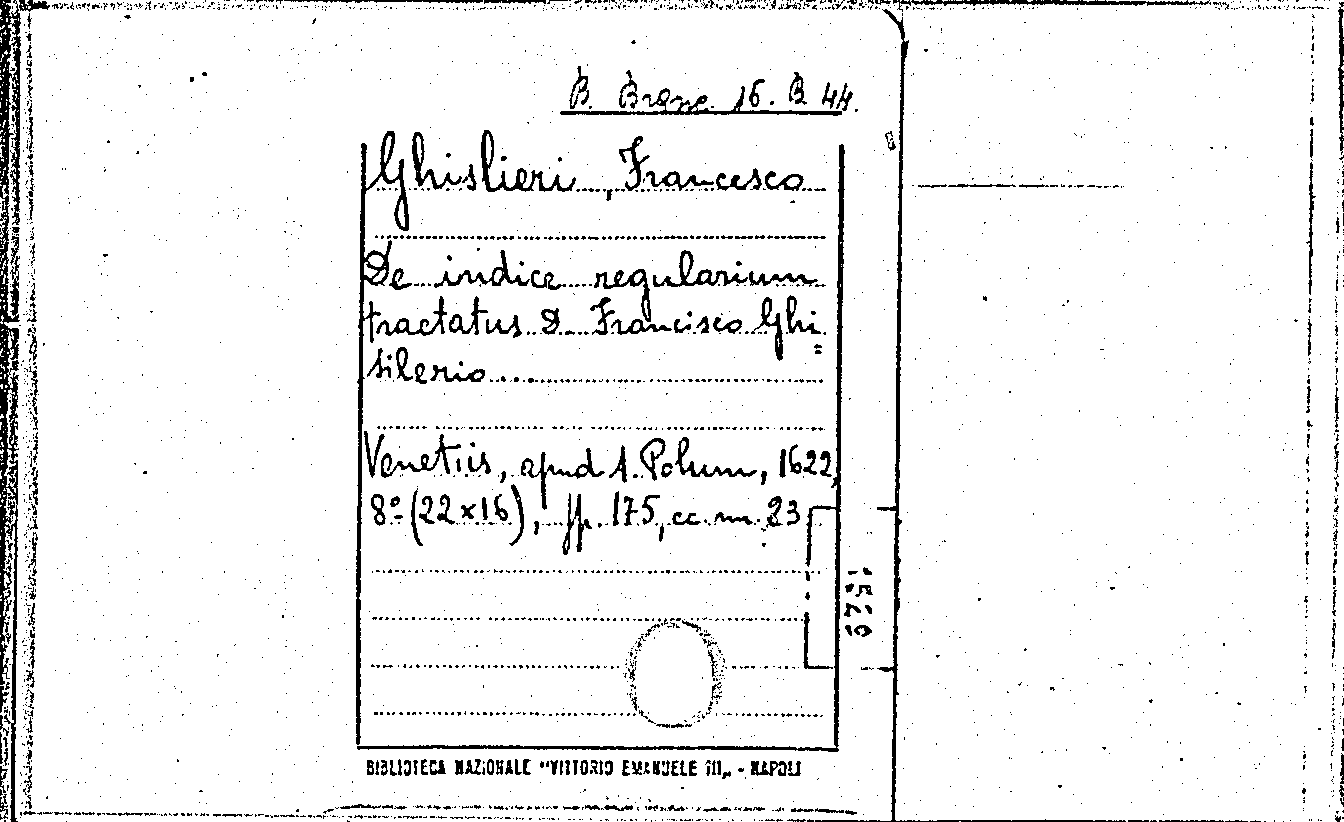 B. Branc. 16. B 44.
Ghislieri, Francesco
De iudice regularium
tractatus D. Francisco Ghi=
silerio...
Venetiis, apud A. Polum, 1622,
8º (22×16), pp. 175, cc. nn. 23
BIBLIOTECA NAZIONALE "VITTORIO EMANUELE III„ - NAPOLI